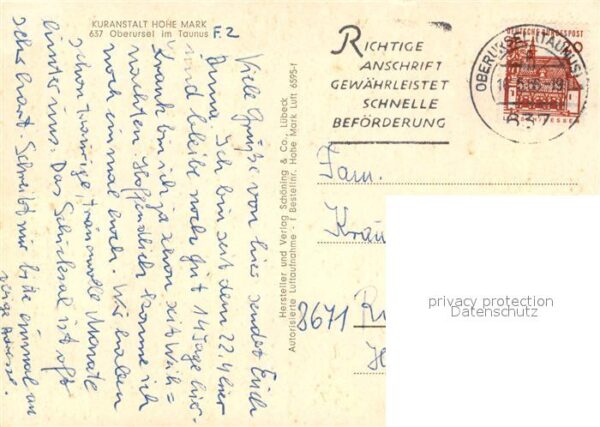 KURANSTALT HOHE MARK
637 Oberursel im Taunus
F. 2
Viele Grüße von hier sendet Euch
Anna. Ich bin seit dem 22.4 hier
und bleibe noch gut 14 Tage hier.
Krank bin ich ja schon seit Weih=
nachten. Hoffentlich komme ich
noch einmal hoch. Wir haben
schon traurige, traurvolle Monate
hinter uns. Das Schicksal ist oft
sehr hart. Schreibt mir bitte einmal an
Adresse.
Hersteller und Verlag Schöning & Co., Lübeck
Autorisierte Luftaufnahme · Bestellnr. Hohe Mark Luft 6595-f
RICHTIGE
ANSCHRIFT
GEWÄHRLEISTET
SCHNELLE
BEFÖRDERUNG
OBERURSEL (TAUNUS)
637
DEUTSCHE BUNDESPOST
Fam.
8671
privacy protection
Datenschutz